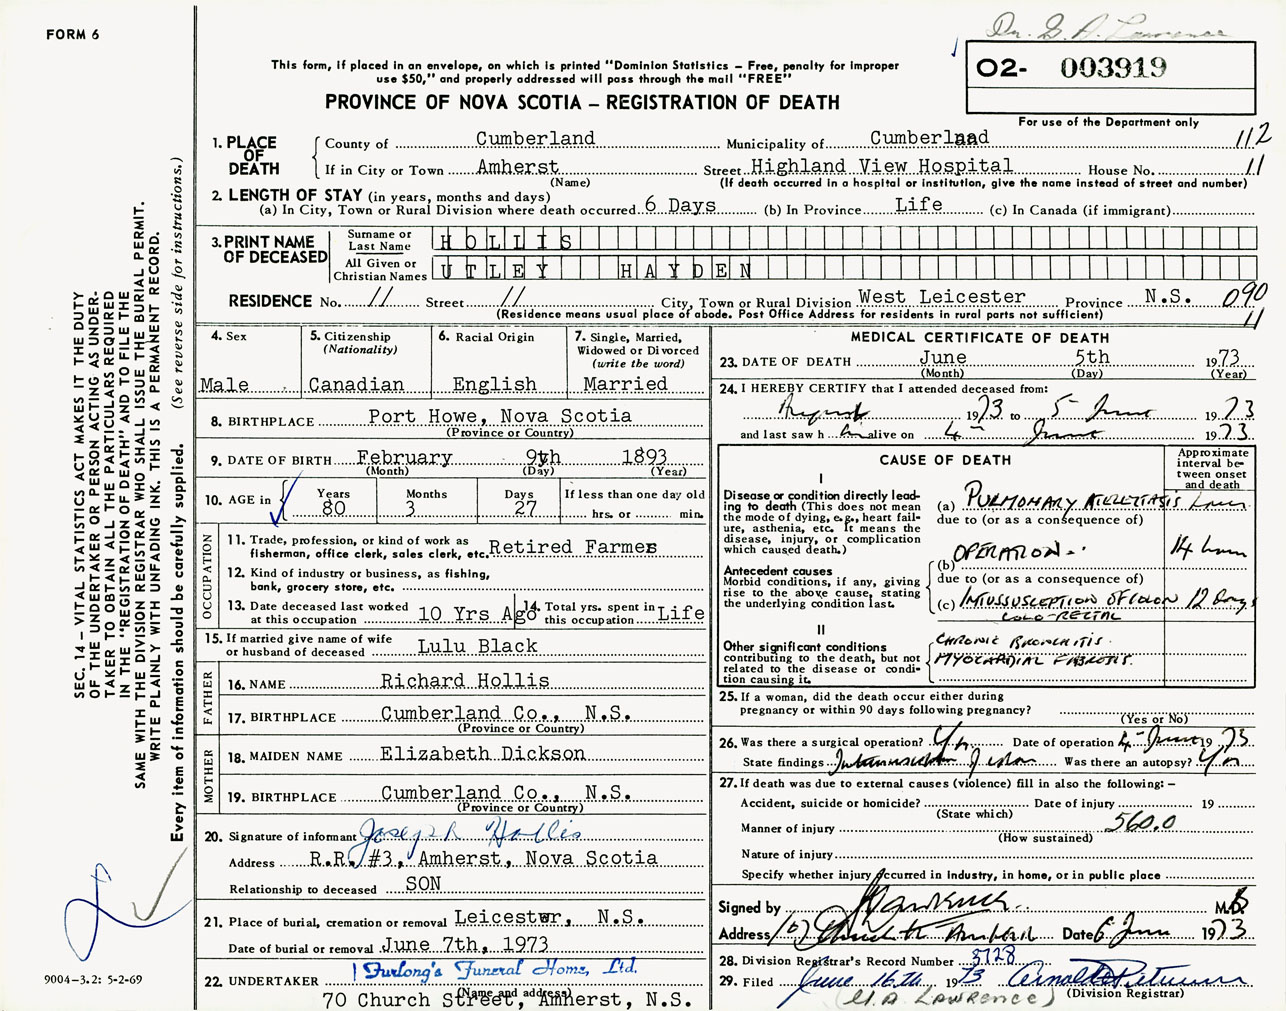 Dr. G. A. Lawrence
FORM 6
This form, if placed in an envelope, on which is printed "Dominion Statistics – Free, penalty for improper
use $50," and properly addressed will pass through the mail "FREE"
PROVINCE OF NOVA SCOTIA – REGISTRATION OF DEATH
02- 003919
For use of the Department only
1. PLACE OF DEATH
County of Cumberland Municipality of Cumberland 112
If in City or Town Amherst Street Highland View Hospital House No. 11
(Name) (If death occurred in a hospital or institution, give the name instead of street and number)
2. LENGTH OF STAY (in years, months and days)
(a) In City, Town or Rural Division where death occurred 6 Days (b) In Province Life (c) In Canada (if immigrant)
3. PRINT NAME OF DECEASED
Surname or Last Name HOLLIS
All Given or Christian Names UTLEY HAYDEN
RESIDENCE No. // Street // City, Town or Rural Division West Leicester Province N.S. 090
(Residence means usual place of abode. Post Office Address for residents in rural parts not sufficient) 11
4. Sex
Male
5. Citizenship
(Nationality)
Canadian
6. Racial Origin
English
7. Single, Married,
Widowed or Divorced
(write the word)
Married
8. BIRTHPLACE Port Howe, Nova Scotia
(Province or Country)
9. DATE OF BIRTH February 9th 1893
(Month) (Day) (Year)
10. AGE in Years 80 Months 3 Days 27 If less than one day old
hrs. or min.
OCCUPATION
11. Trade, profession, or kind of work as
fisherman, office clerk, sales clerk, etc. Retired Farmer
12. Kind of industry or business, as fishing,
bank, grocery store, etc.
13. Date deceased last worked
at this occupation 10 Yrs Ago
14. Total yrs. spent in
this occupation Life
15. If married give name of wife
or husband of deceased Lulu Black
FATHER
16. NAME Richard Hollis
17. BIRTHPLACE Cumberland Co., N.S.
(Province or Country)
MOTHER
18. MAIDEN NAME Elizabeth Dickson
19. BIRTHPLACE Cumberland Co., N.S.
(Province or Country)
20. Signature of informant Joseph Hollis
Address R.R. #3, Amherst, Nova Scotia
Relationship to deceased SON
21. Place of burial, cremation or removal Leicester, N.S.
Date of burial or removal June 7th, 1973
22. UNDERTAKER Furlong's Funeral Home, Ltd.
(Name and address)
70 Church Street, Amherst, N.S.
MEDICAL CERTIFICATE OF DEATH
23. DATE OF DEATH June 5th 1973
(Month) (Day) (Year)
24. I HEREBY CERTIFY that I attended deceased from:
August 1973 to 5 June 1973
and last saw h im alive on 4 June 1973
CAUSE OF DEATH
Approximate
interval be-
tween onset
and death
I
Disease or condition directly lead-
ing to death (This does not mean
the mode of dying, e.g., heart fail-
ure, asthenia, etc. It means the
disease, injury, or complication
which caused death.)
(a) PULMONARY ATELECTASIS hours
due to (or as a consequence of)
Antecedent causes
Morbid conditions, if any, giving
rise to the above cause, stating
the underlying condition last.
(b) OPERATION 14 hours
due to (or as a consequence of)
(c) INTUSSUSCEPTION OF COLON 12 days
COLO-RECTAL
II
Other significant conditions
contributing to the death, but not
related to the disease or condi-
tion causing it.
CHRONIC BRONCHITIS
MYOCARDIAL FIBROSIS.
25. If a woman, did the death occur either during
pregnancy or within 90 days following pregnancy?
(Yes or No)
26. Was there a surgical operation? Yes Date of operation 4 June 1973
State findings Intussusception of colon Was there an autopsy? Yes
27. If death was due to external causes (violence) fill in also the following: –
Accident, suicide or homicide? Date of injury 19
(State which)
Manner of injury 560.0
(How sustained)
Nature of injury
Specify whether injury occurred in industry, in home, or in public place
Signed by M.D.
Address 107 Church St Amherst Date 6 June 1973
28. Division Registrar's Record Number 3728
29. Filed June 16th 1973
(Division Registrar)
(G.A. LAWRENCE)
SEC. 14 – VITAL STATISTICS ACT MAKES IT THE DUTY
OF THE UNDERTAKER OR PERSON ACTING AS UNDER-
TAKER TO OBTAIN ALL THE PARTICULARS REQUIRED
IN THE "REGISTRATION OF DEATH" AND TO FILE THE
SAME WITH THE DIVISION REGISTRAR WHO SHALL ISSUE THE BURIAL PERMIT.
WRITE PLAINLY WITH UNFADING INK. THIS IS A PERMANENT RECORD.
Every item of information should be carefully supplied. (See reverse side for instructions.)
9004–3.2: 5-2-69